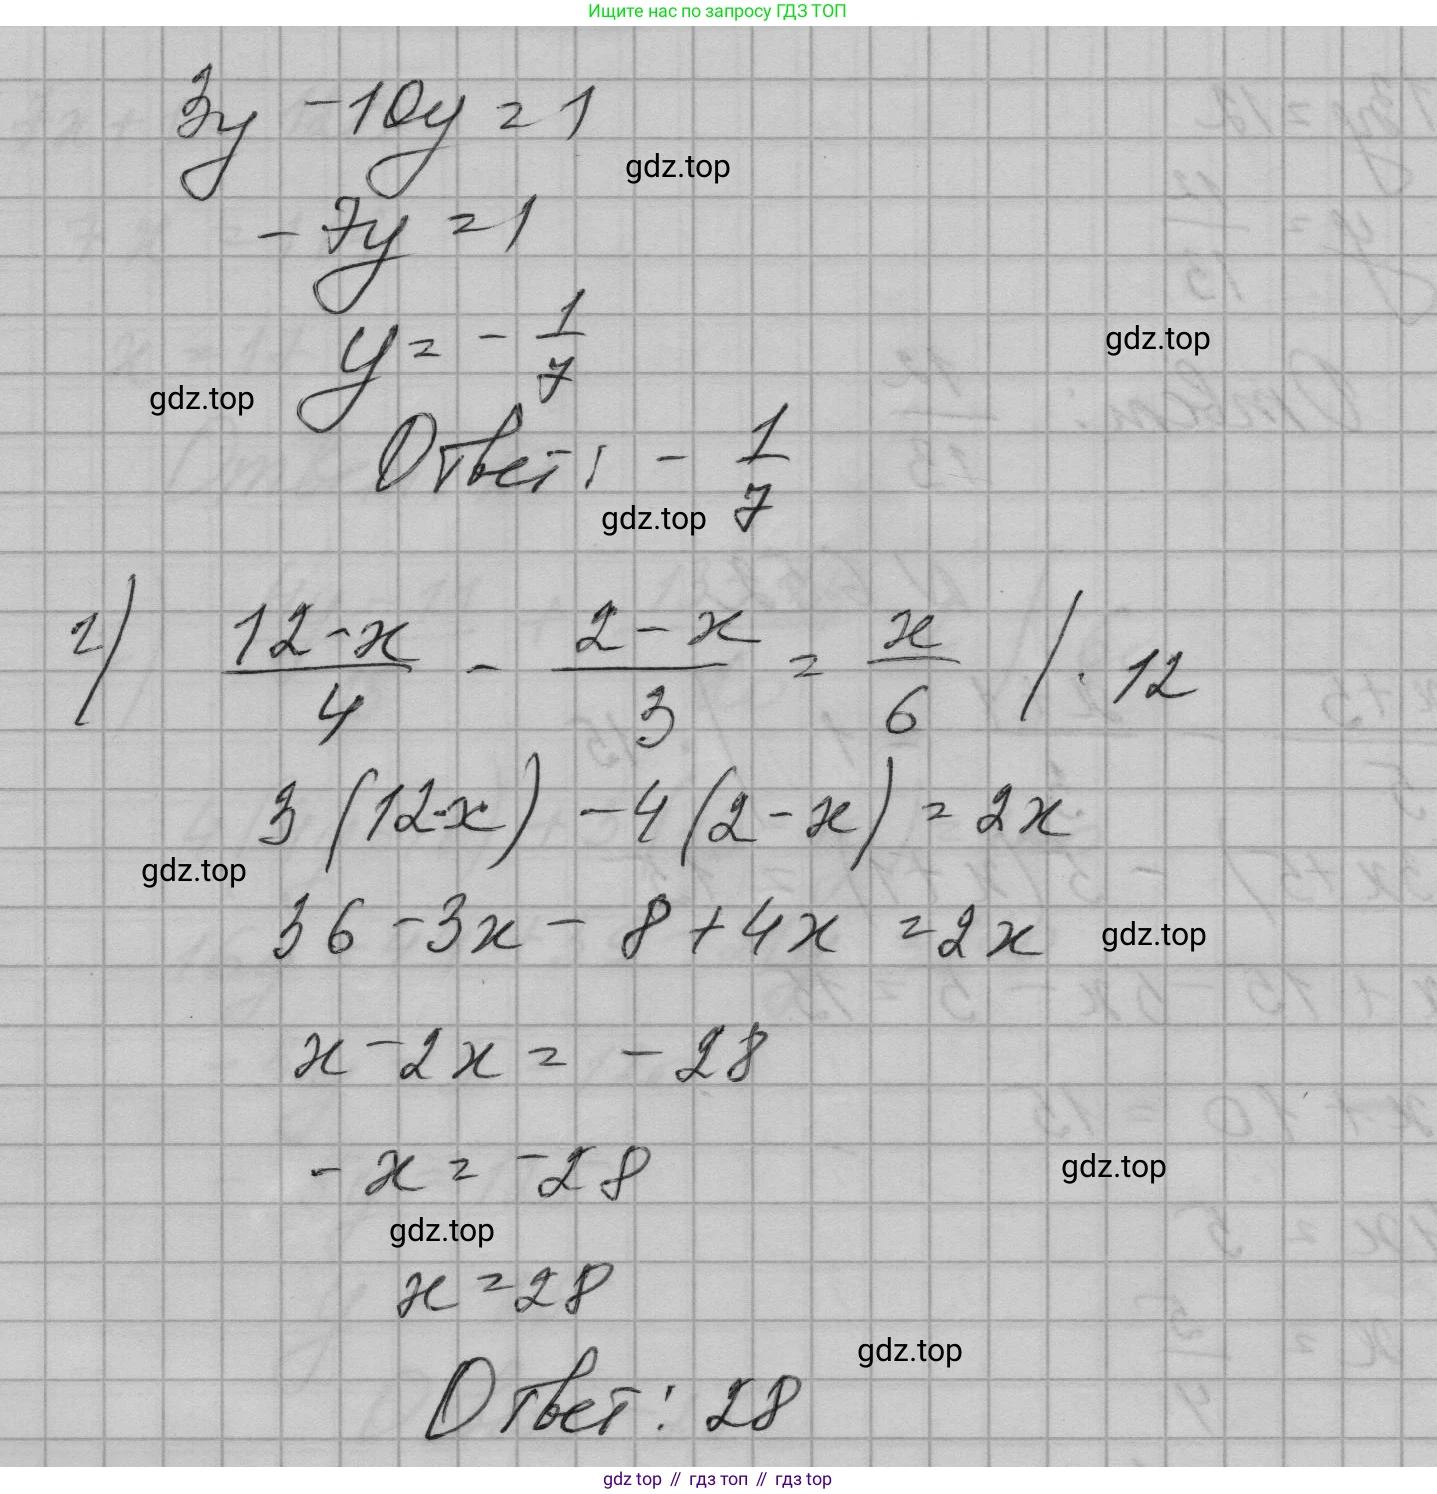 Ищите нас по запросу ГДЗ ТОП
3y - 10y = 1
gdz.top
- 7y = 1
y = - 1/7
gdz.top
gdz.top
Ответ: - 1/7
gdz.top
г) (12-x)/4 - (2-x)/3 = x/6 / · 12
3 (12-x) - 4 (2-x) = 2x
gdz.top
36 - 3x - 8 + 4x = 2x
gdz.top
x - 2x = - 28
- x = - 28
gdz.top
gdz.top
x = 28
gdz.top
Ответ: 28
gdz top // гдз топ // гдз top